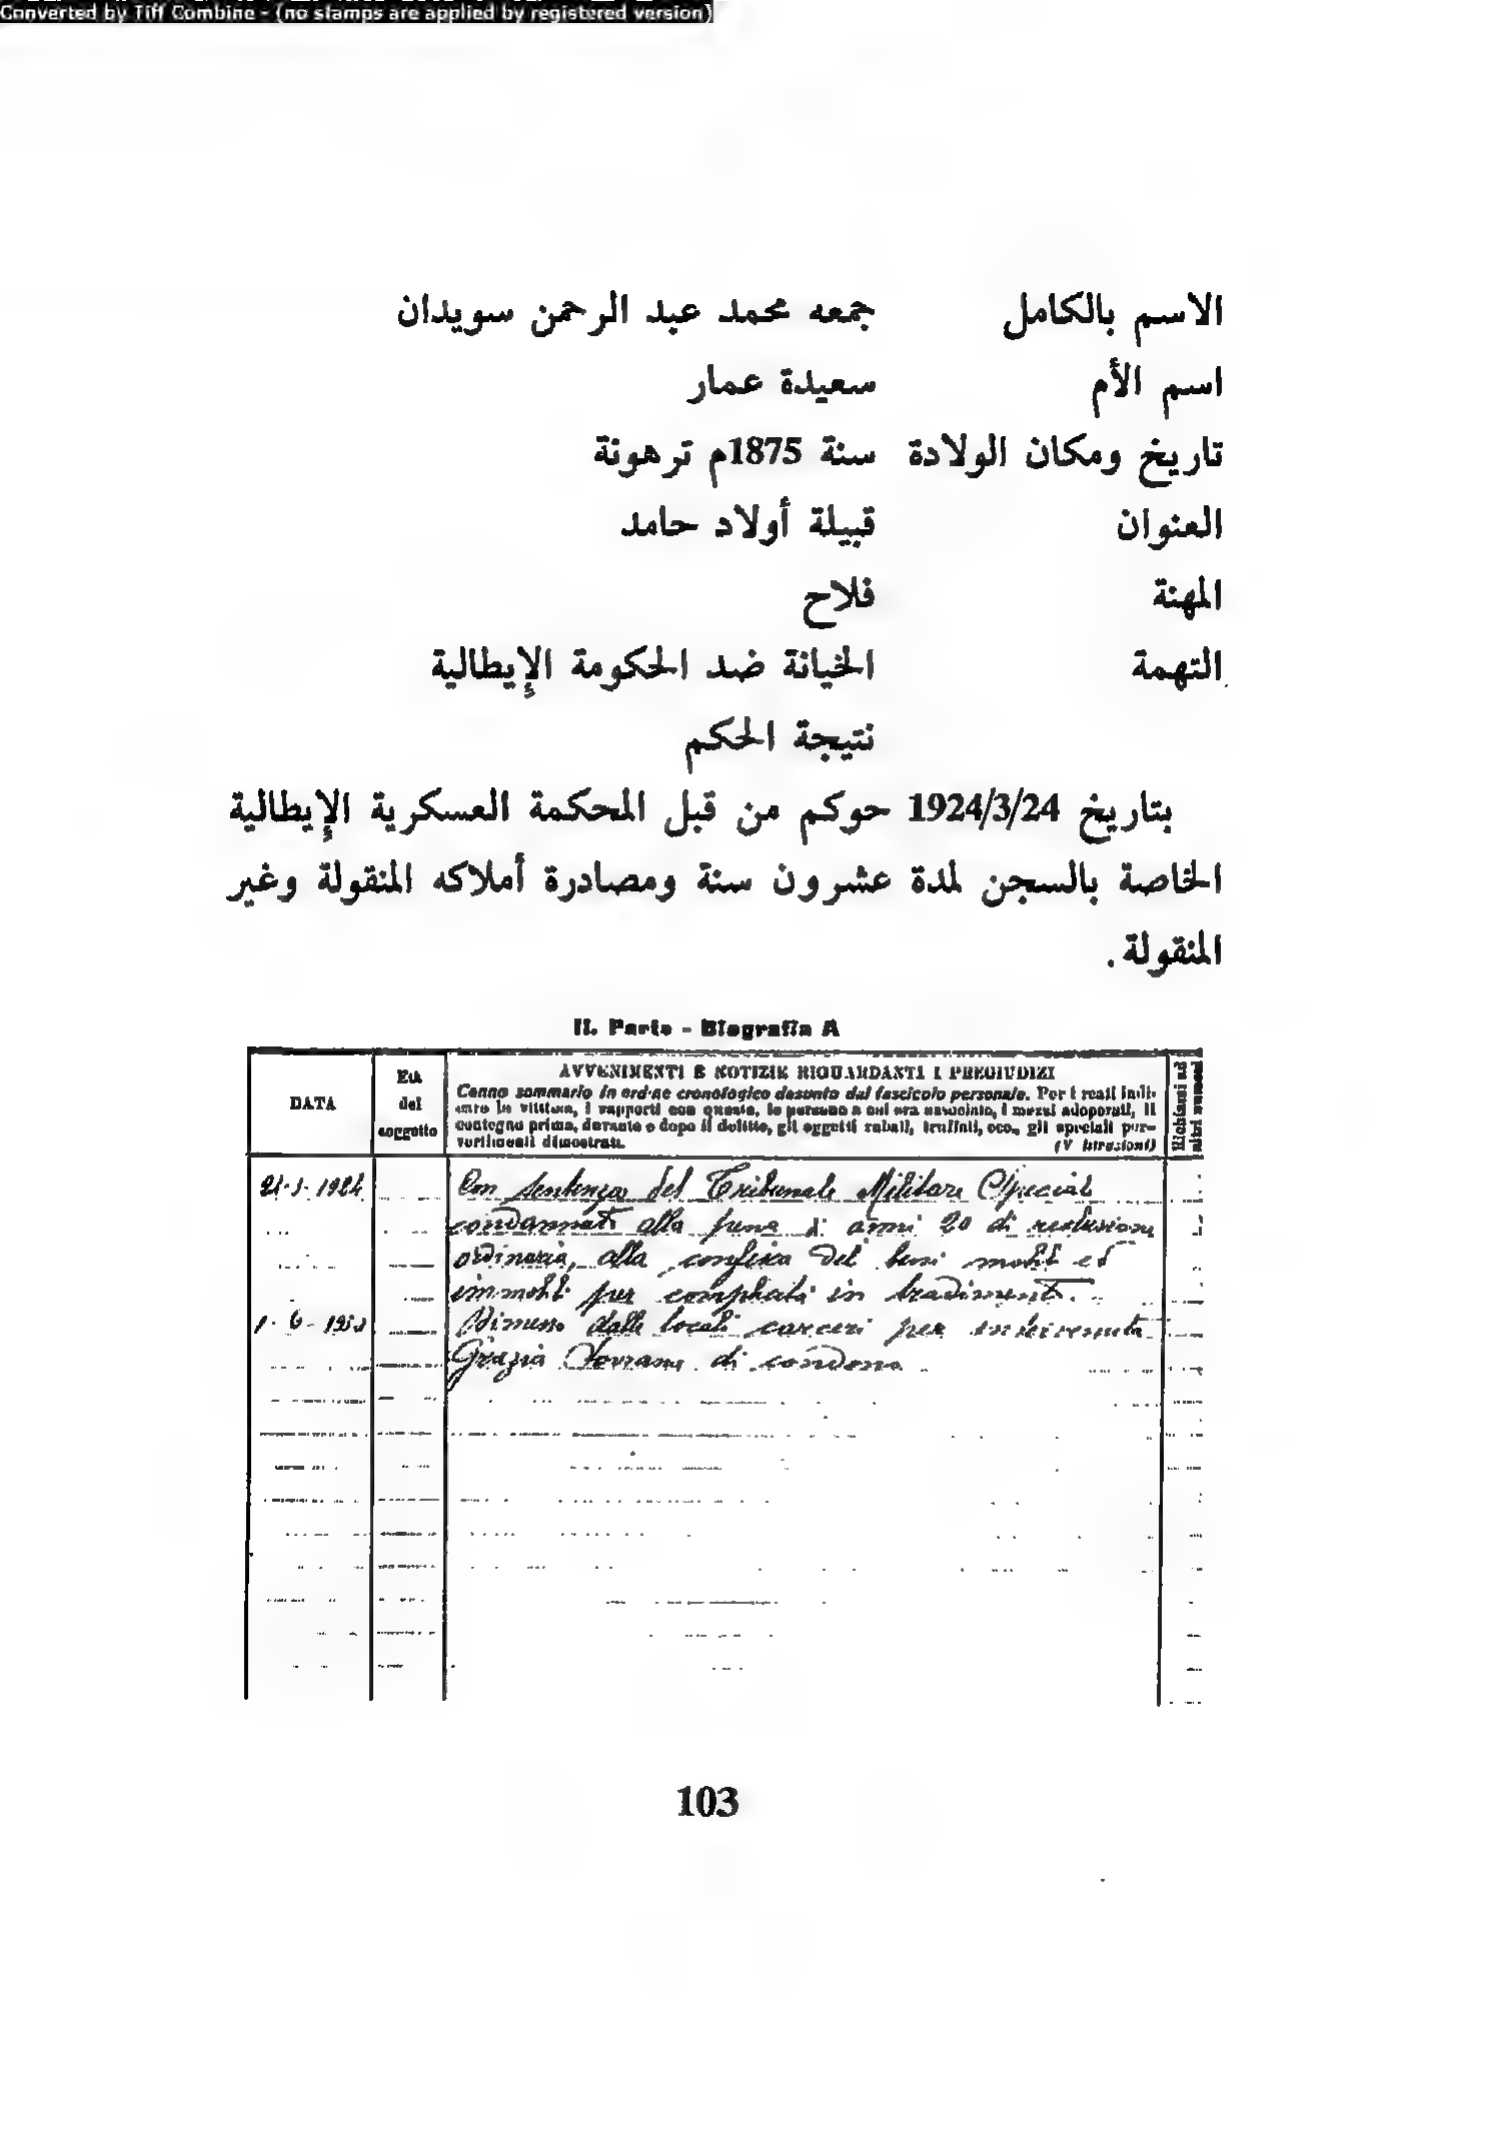 Converted by Tiff Combine - (no stamps are applied by registered version)
الاسم بالكامل جمعه محمد عبد الرحمن سويدان
اسم الأم سعيدة عمار
تاريخ ومكان الولادة سنة 1875م ترهونة
العنوان قبيلة أولاد حامد
المهنة فلاح
التهمة الخيانة ضد الحكومة الإيطالية
نتيجة الحكم
بتاريخ 1924/3/24 حوكم من قبل المحكمة العسكرية الإيطالية
الخاصة بالسجن لمدة عشرون سنة ومصادرة أملاكه المنقولة وغير
المنقولة.
II. Parte - Biografia A
DATA
Età
del
soggetto
AVVENIMENTI E NOTIZIE RIGUARDANTI I PREGIUDIZI
Cenno sommario in ordine cronologico desunto dal fascicolo personale. Per i reati indi-
care la vittima, i rapporti con questa, le persone a cui era associato, i mezzi adoperati, il
contegno prima, durante e dopo il delitto, gli oggetti rubati, truffati, ecc., gli speciali per-
vertimenti dimostrati.
Richiami ad
altri numeri
Con sentenza del Tribunale Militare Speciale
condannato alla pena di anni 20 di reclusione
ordinaria, alla confisca dei beni mobili ed
immobili per complicità in tradimento.
Dimesso dalle locali carceri per
Grazia Sovrana di condono
103